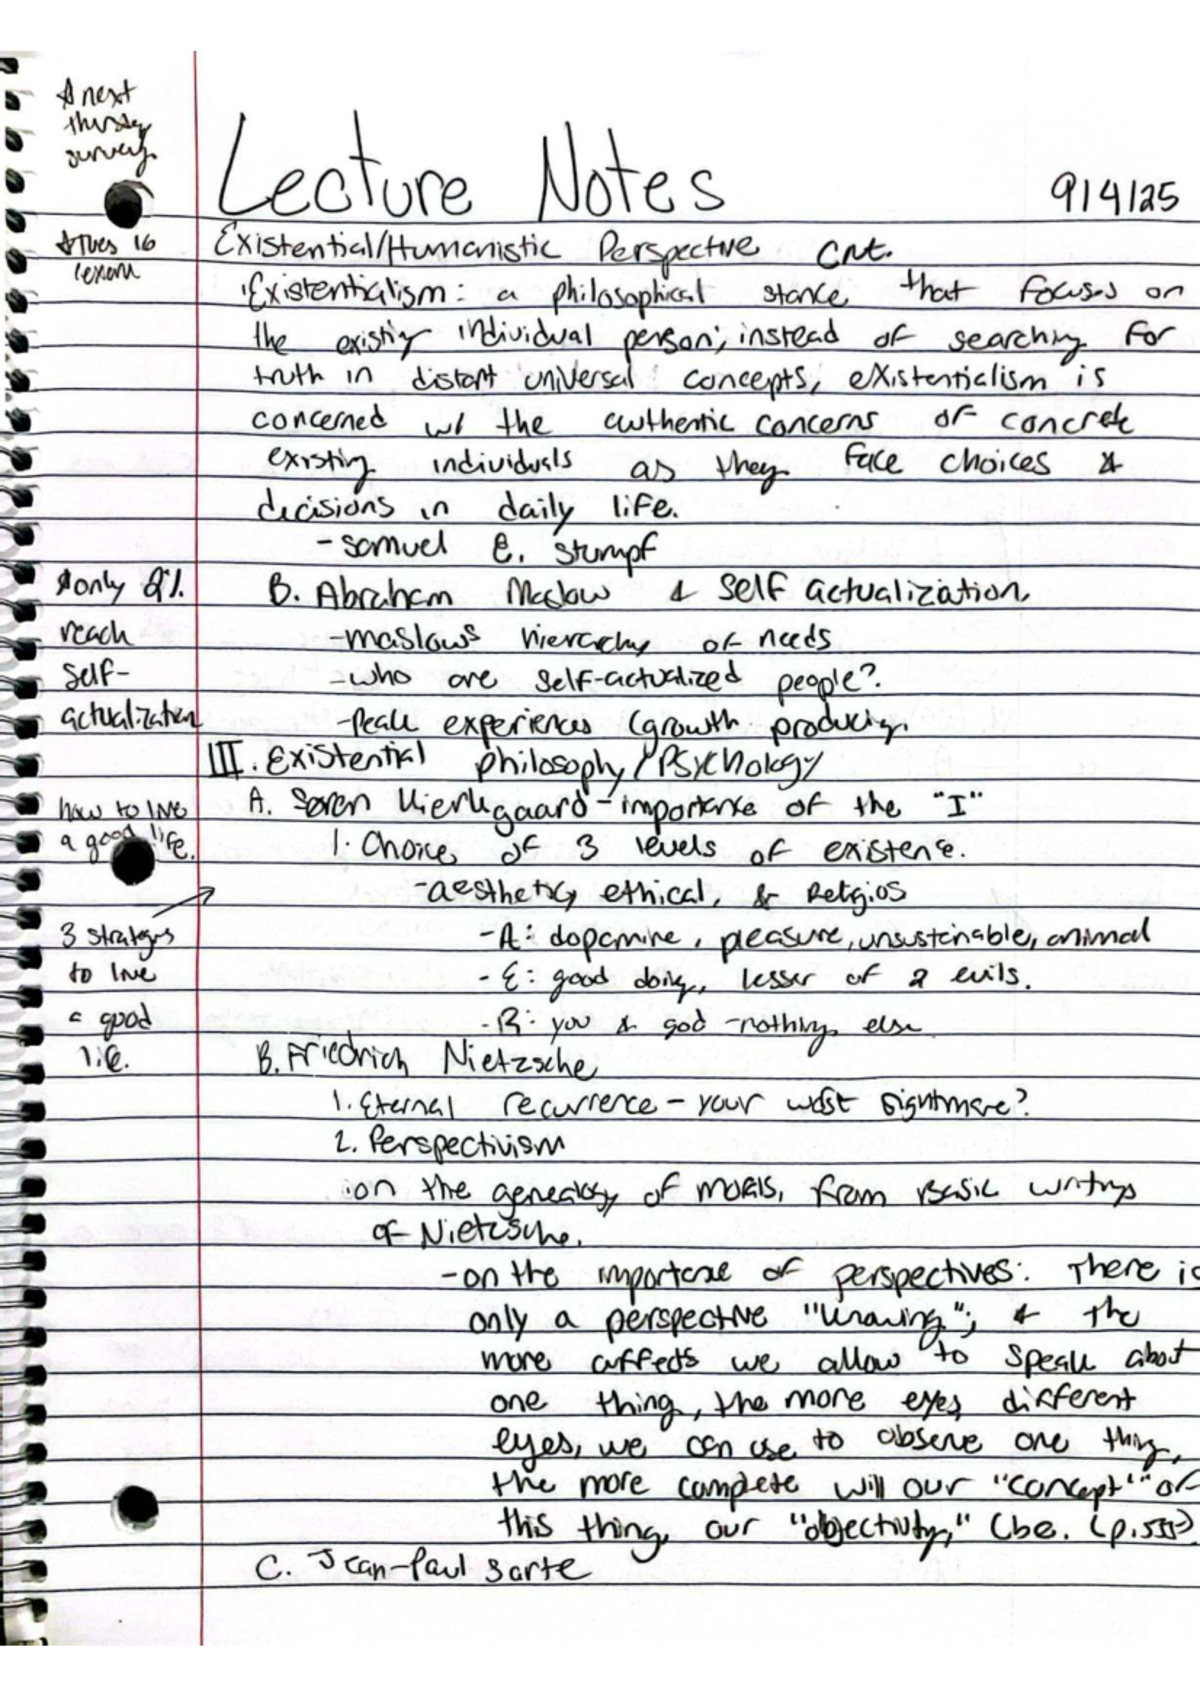 ☆ next
thursday
survey.
Lecture Notes 9/4/25
☆Tues 16
(exam
Existential/Humanistic Perspective Cnt.
'Existentialism: a philosophical stance that focuses on
the existing individual person; instead of searching for
truth in distant universal concepts, existentialism is
concerned w/ the authentic concerns of concrete
existing individuals as they face choices &
decisions in daily life.
- Samuel E. Stumpf
☆only 2%
reach
self-
actualization
B. Abraham Maslow & Self actualization
-maslows hierarchy of needs
-who are self-actualized people?
-Peak experiences (growth producing.
III. Existential philosophy/Psychology
how to live
a good life.
3 strategies
to live
a good
life.
A. Søren Kierkgaard - importance of the "I"
1. Choice of 3 levels of existence.
-aesthetic, ethical, & Religios
-A: dopamine, pleasure, unsustainable, animal
-E: good doing, lesser of 2 evils.
-R: you & god -nothing else
B. Friedrich Nietzsche
1. Eternal recurrence - your worst nightmare?
2. Perspectivism
·on the genealogy of morals, from Basic writings
of Nietzsche.
-on the importance of perspectives: There is
only a perspective "knowing"; & the
more affects we allow to speak about
one thing, the more eyes, different
eyes, we can use to observe one thing,
the more complete will our "concept" of
this thing, our "objectivity," (be. (p.555).
C. Jean-Paul Sarte